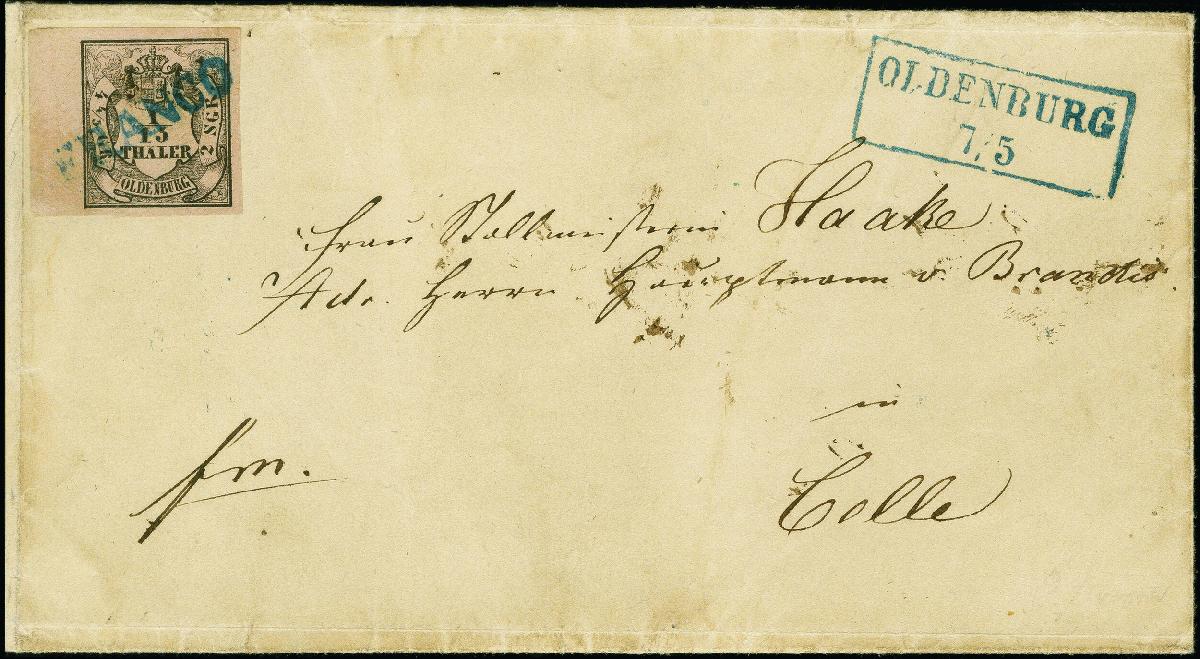 FRANCO
1
15
THALER
2 SGR.
OLDENBURG
OLDENBURG
7/5
Frau Stallmeisterin Haake
Adr. Herrn Hauptmann v. Brandis.
in
Celle
frn.